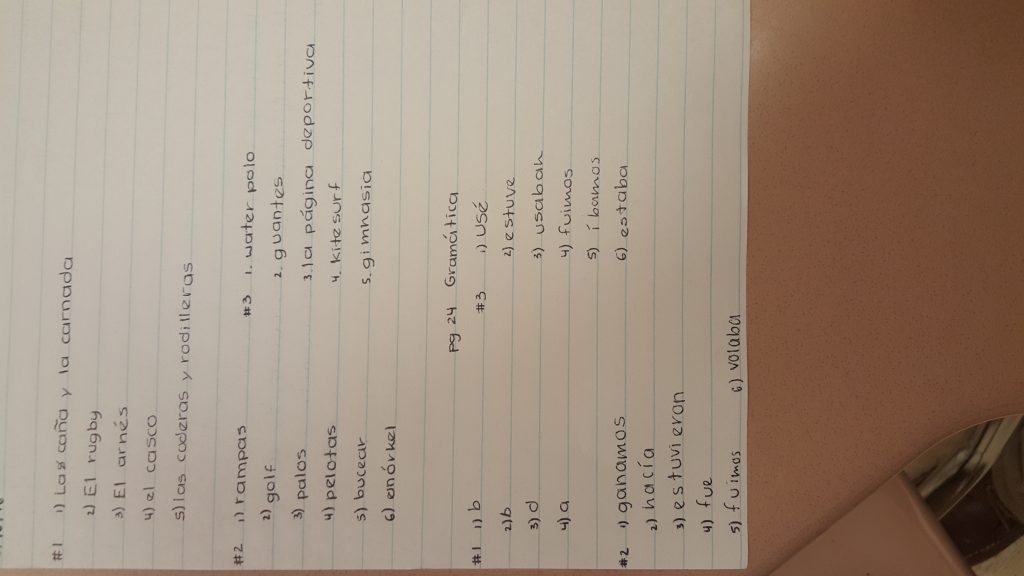 #1 1) Las caña y la carnada
2) El rugby
3) El arnés
4) el casco
5) las coderas y rodilleras
#2 1) rampas
2) golf
3) palos
4) pelotas
5) bucear
6) enórkel
#3 1. water polo
2. guantes
3. la página deportiva
4. kitesurf
5. gimnasia
pg 24 Gramática
#1 1) b
2) b
3) d
4) a
#2 1) ganamos
2) hacía
3) estuvieron
4) fue
5) fuimos
6) volaba
#3 1) usé
2) estuve
3) usaban
4) fuimos
5) íbamos
6) estaba